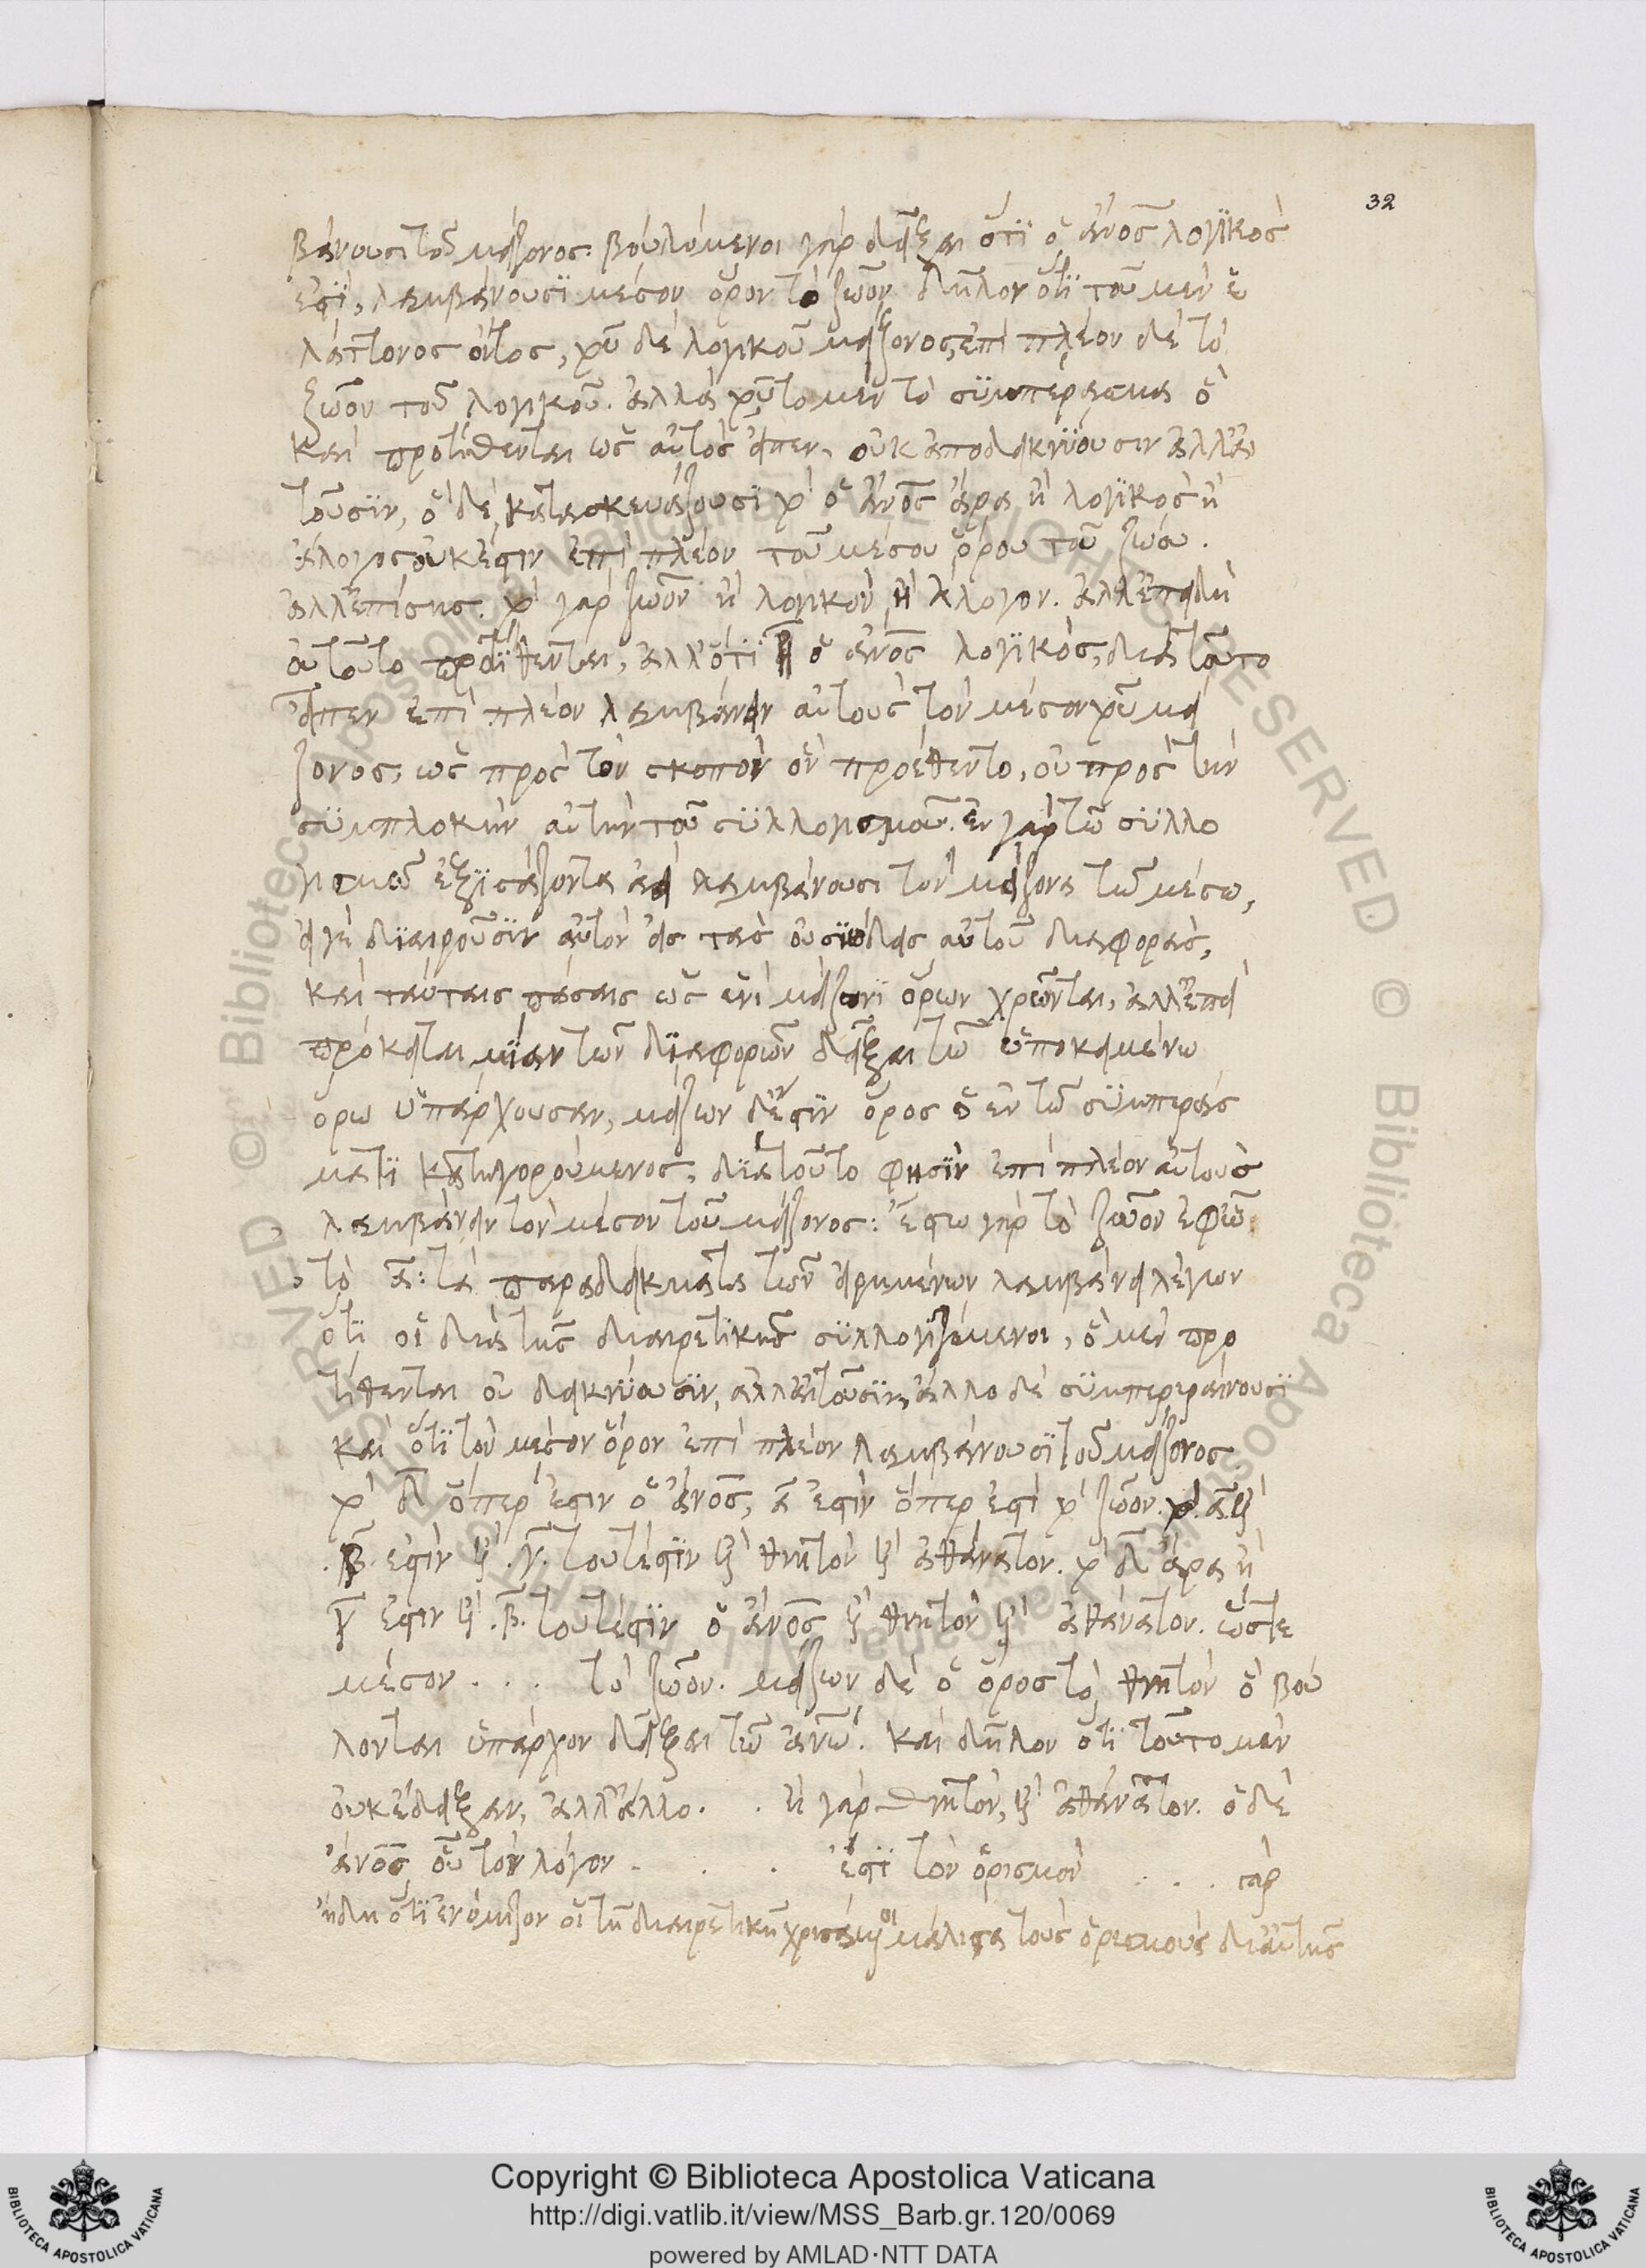 32
βάνουσι τοῦ μείζονος. βουλόμενοι γὰρ δεῖξαι ὅτι ὁ ἄνος λογικὸς
ἐστι, λαμβάνουσι μέσον ὅρον τὸ ζῶον δῆλον ὅτι τοῦ μὲν ἐ
λάττονος ὄντος, χυ δὲ λογικοῦ μείζονος, ἐπὶ πλέον δὲ τὸ
ζῶον τοῦ λογικοῦ. ἀλλὰ χυτο μὲν τὸ συμπέρασμα ὃ
καὶ προτίθενται ὡς αὐτὸς εἶπεν, οὐκ ἀποδεικνύουσιν ἀλλ' αι
τοῦσιν, ὃ δὲ κατασκευάζουσι χ' ὁ ἄνος ἄρα ἢ λογικὸς ἢ
ἄλογος οὐκ ἔστιν ἐπὶ πλέον τοῦ μέσου ὅρου τοῦ ζώου.
ἀλλ' ἐπίσης. χ' γὰρ ζῶον ἢ λογικὸν ἢ ἄλογον. ἀλλ' ἐπειδὴ
οὐ τοῦτο προτίθενται, ἀλλ' ὅτι ὁ ἄνος λογικὸς, διὰ τοῦτο
εἶπεν ἐπὶ πλέον λαμβάνειν αὐτοὺς τὸν μέσον χυ μεί
ζονος, ὡς πρὸς τὸν σκοπὸν ὃν προέθεντο, οὐ πρὸς τὴν
συμπλοκὴν αὐτὴν τοῦ συλλογισμοῦ. ἐν γὰρ τῶ συλλο
γισμῶ ἐξισάζοντα ἀεὶ λαμβάνουσι τὸν μείζονα τῶ μέσω,
εἴγε διαιροῦσιν αὐτὸν εἰς τὰς οὐσιώδεις αὐτοῦ διαφορὰς,
καὶ ταύταις πάσαις ὡς ἑνὶ μείζονι ὅρων χρῶνται, ἀλλ' ἐπεὶ
πρόκειται μίαν τῶν διαφορῶν δεῖξαι τῶ ὑποκειμένω
ὅρω ὑπάρχουσαν, μείζων δέ ἐστιν ὅρος ὁ ἐν τῶ συμπεράς
ματι κατηγορούμενος, διὰ τοῦτο φησὶν ἐπὶ πλέον αὐτοὺς
λαμβάνειν τὸν μέσον τοῦ μείζονος: ἔστω γὰρ τὸ ζῶον ἐφ' ὧ
τὸ α: τὰ παραδείγματα τῶν εἰρημένων λαμβάνει λέγων
ὅτι οἱ διὰ τῆς διαιρετικῆς συλλογιζόμενοι, ὃ μὲν προ
τίθενται οὐ δεικνύουσιν, ἀλλ' αἰτοῦσιν, ἄλλο δὲ συμπεραίνουσι
καὶ ὅτι τὸν μέσον ὅρον ἐπὶ πλέον λαμβάνουσι τοῦ μείζονος
χ' δ ὅπερ ἐστιν ὁ ἄνος, α ἐστὶν ὅπερ ἐστὶ χ' ζῶον. χ' α ἢ
.β. ἐστὶν ἢ .γ. τουτέστιν ἢ θνητὸν ἢ ἀθάνατον. χ' δ ἄρα ἢ
γ ἐστιν ἢ .β. τουτέστιν ὁ ἄνος ἢ θνητὸν ἢ ἀθάνατον. ὥστε
μέσον . . . τὸ ζῶον. μείζων δὲ ὁ ὅρος τὸ θνητὸν ὃ βού
λονται ὑπάρχον δεῖξαι τῶ ἄνω. καὶ δῆλον ὅτι τοῦτο μὲν
οὐκ ἔδειξαν, ἀλλ' ἄλλο. . ἢ γὰρ θνητὸν, ἢ ἀθάνατον. ὁ δὲ
ἄνος οὗ τὸν λόγον . . . ἐστὶ τὸν ὁρισμὸν . . . γὰρ
ἤδη ὅτι ἐνόμιζον οἱ τῆ διαιρετικῆ χρησάμενοι μάλιστα τοὺς ὁρισμοὺς δι' αὐτῆς
Copyright © Biblioteca Apostolica Vaticana
http://digi.vatlib.it/view/MSS_Barb.gr.120/0069
powered by AMLAD·NTT DATA